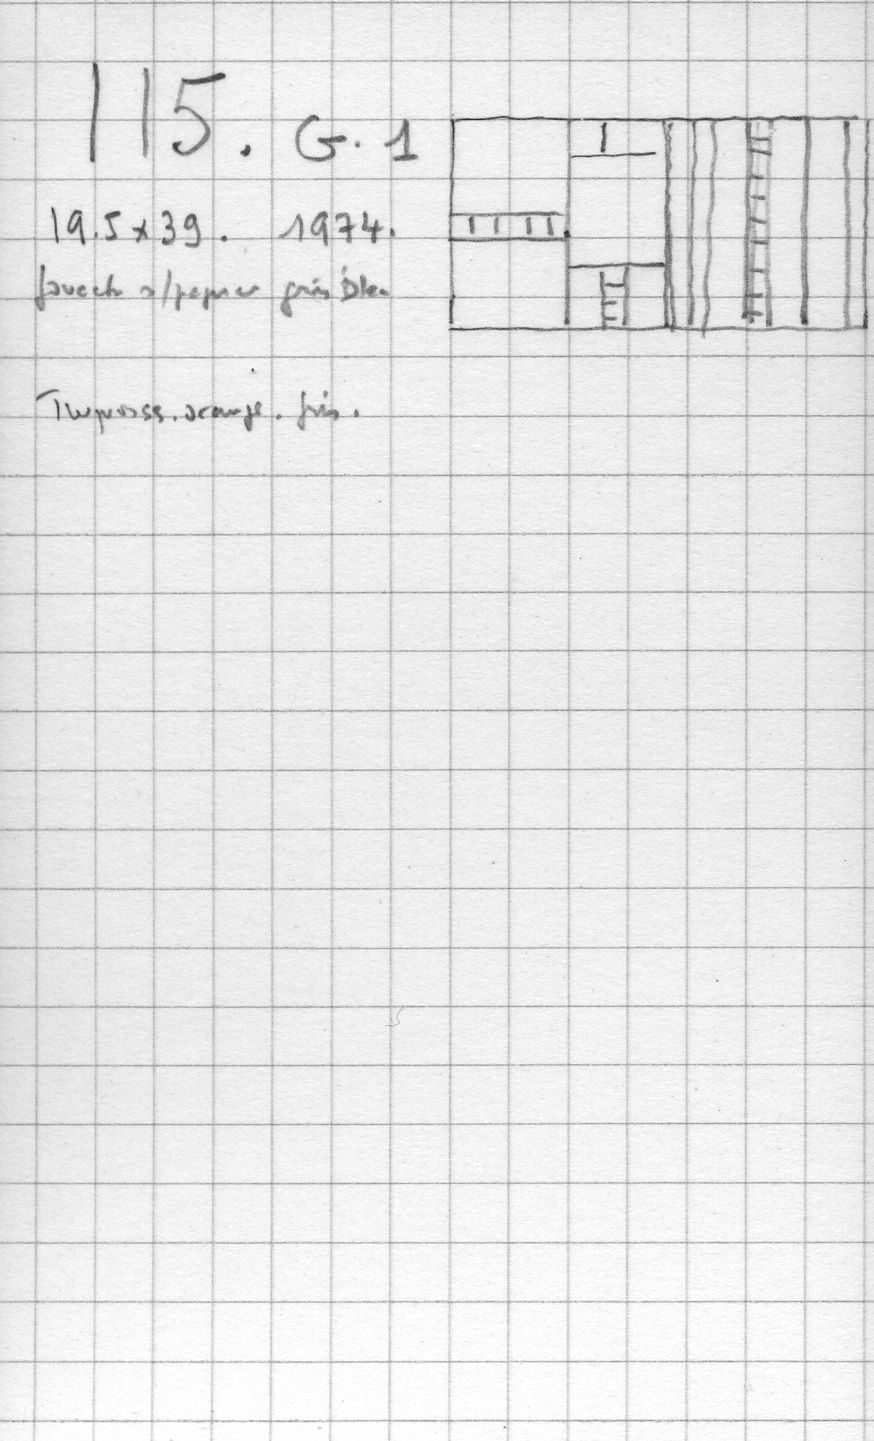 115. G. 1
19.5 x 39. 1974.
gouache s/papier gris bleu
Turquoise. orange. gris.